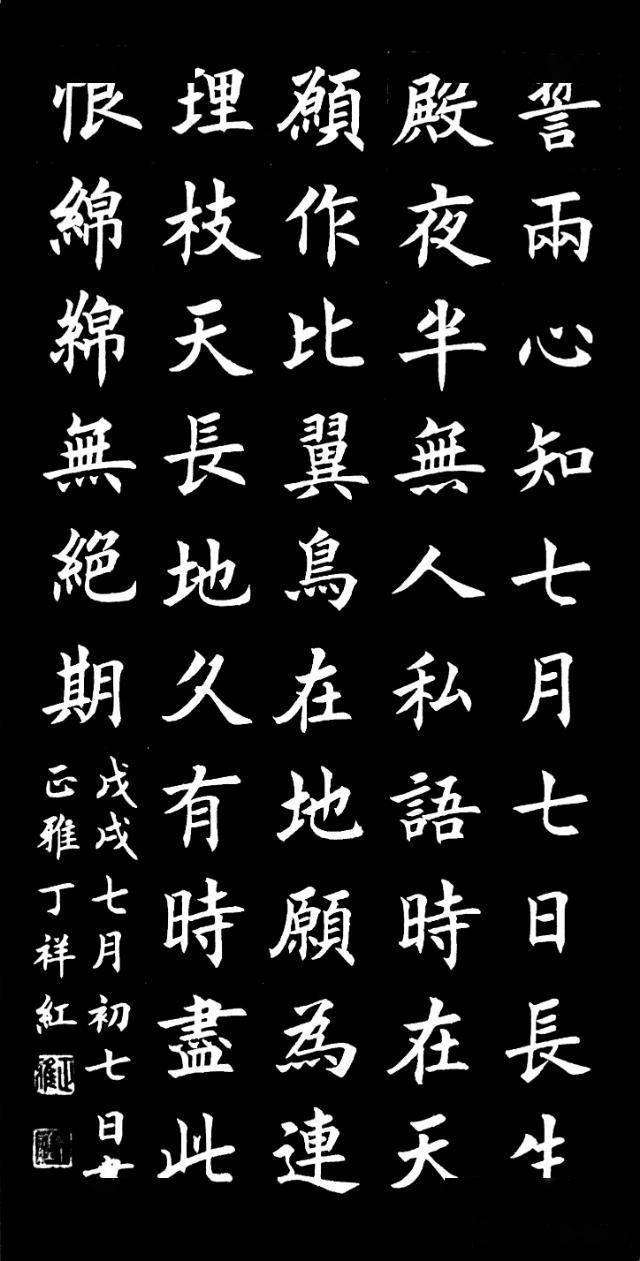 誓兩心知七月七日長生
殿夜半無人私語時在天
願作比翼鳥在地願為連
理枝天長地久有時盡此
恨綿綿無絕期
戊戌七月初七日書
正雅丁祥紅